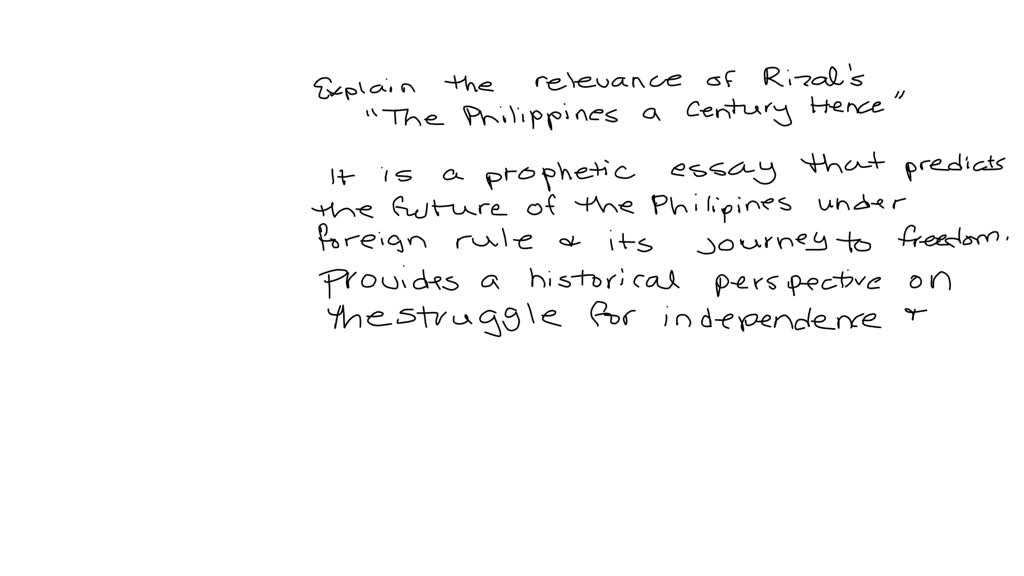 Explain the relevance of Rizal's
"The Philippines a Century Hence"
It is a prophetic essay that predicts
the future of the Philipines under
foreign rule & its journey to freedom.
Provides a historical perspective on
the struggle for independence &